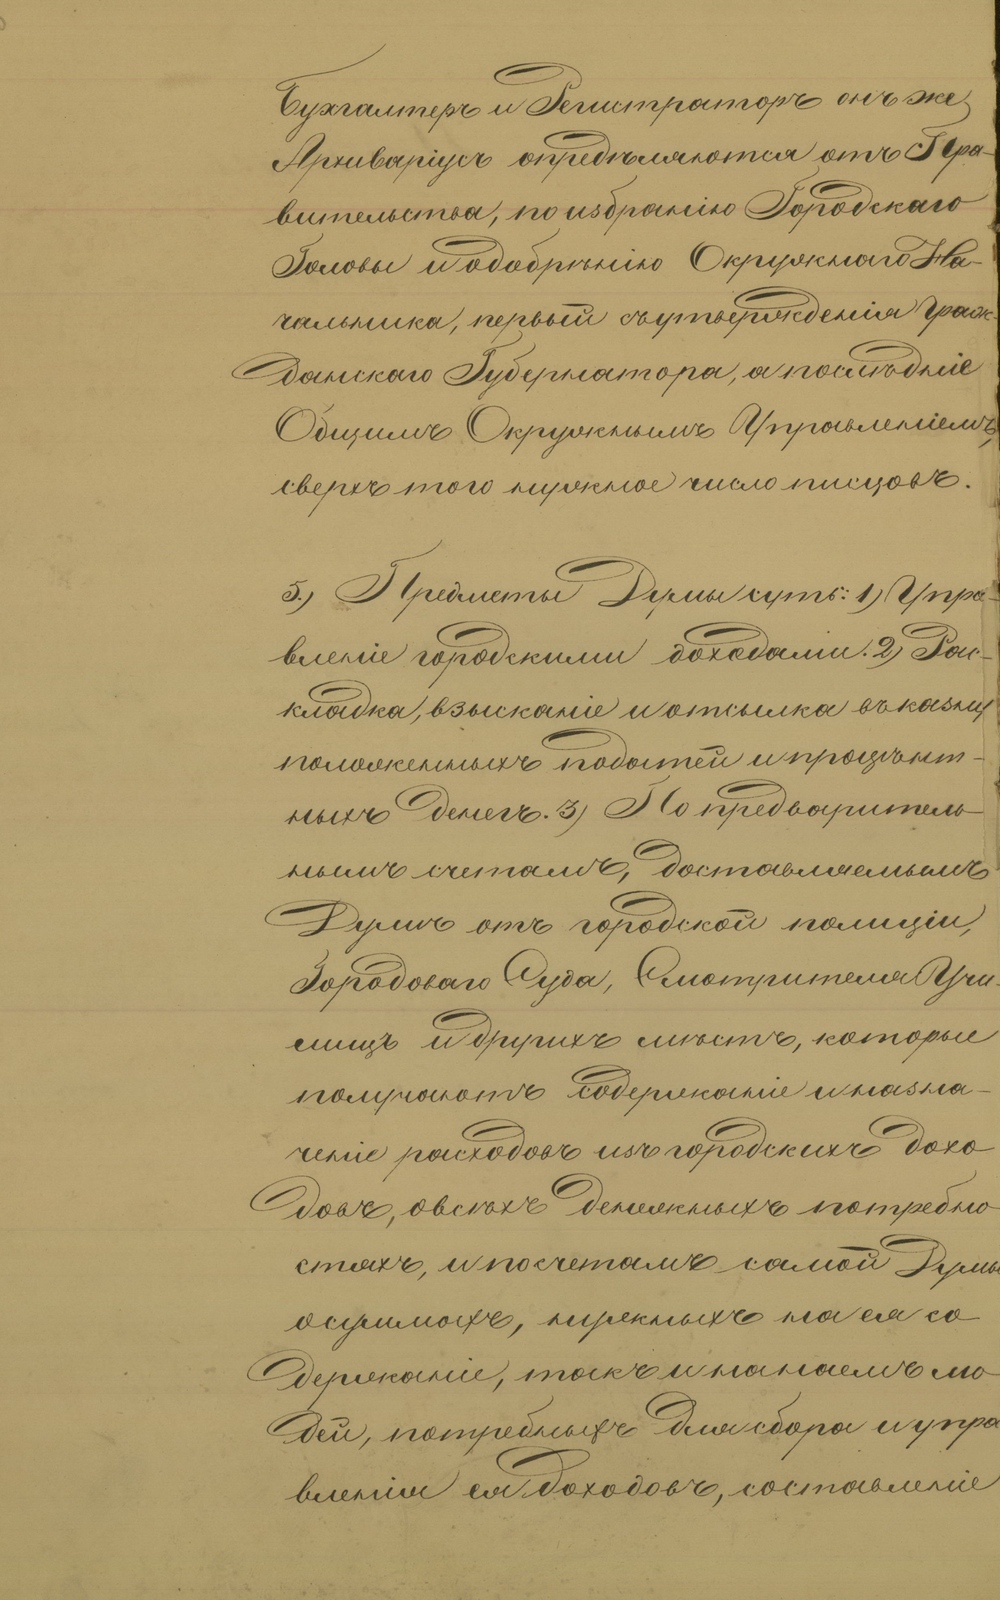 Бухгалтеръ и Регистраторъ онъ же
Архиваріусъ опредѣляются отъ Пра-
вительства, по избранію Городскаго
Головы и одобрѣнію Окружнаго На-
чальника, первый съ утвержденія Граж-
данскаго Губернатора, а послѣдніе
Общимъ Окружнымъ Управленіемъ,
сверхъ того нужное число писцовъ.
5.) Предметы Думы суть: 1) Упра-
вленіе городскими доходами. 2) Рас-
кладка, взысканіе и отсылка въ казну
положенныхъ податей и процѣнт-
ныхъ денегъ. 3) По предваритель-
нымъ счетамъ, доставляемымъ
Думѣ отъ городской полиціи,
Городоваго Суда, Смотрителя Учи-
лищъ и другихъ мѣстъ, которые
получаютъ содержаніе и назна-
ченіе расходовъ изъ городскихъ дохо
довъ, о всѣхъ денежныхъ потребно
стяхъ, и по счетамъ самой Думы
о суммахъ, нужныхъ на ея со
держаніе, такъ и на наемъ лю
дей, потребныхъ для сбора и упра
вленія ея доходовъ, составленіе